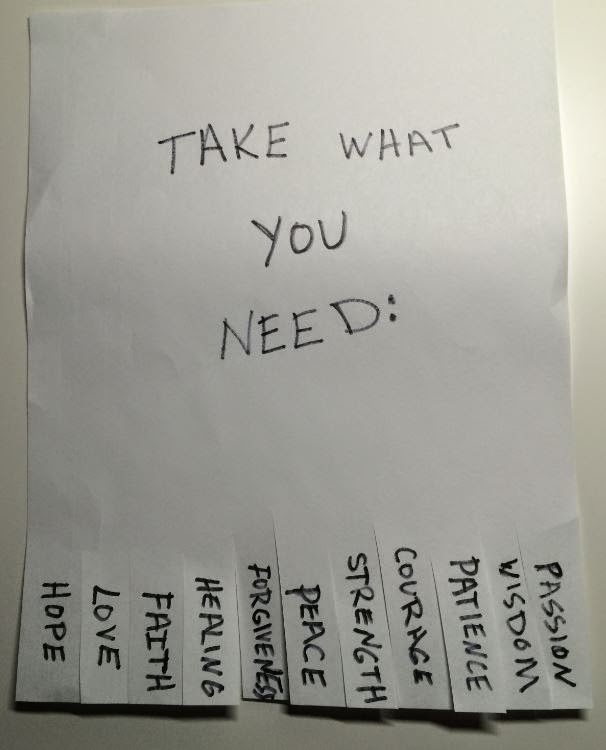 TAKE WHAT
YOU
NEED:
HOPE
LOVE
FAITH
HEALING
FORGIVENESS
PEACE
STRENGTH
COURAGE
PATIENCE
WISDOM
PASSION